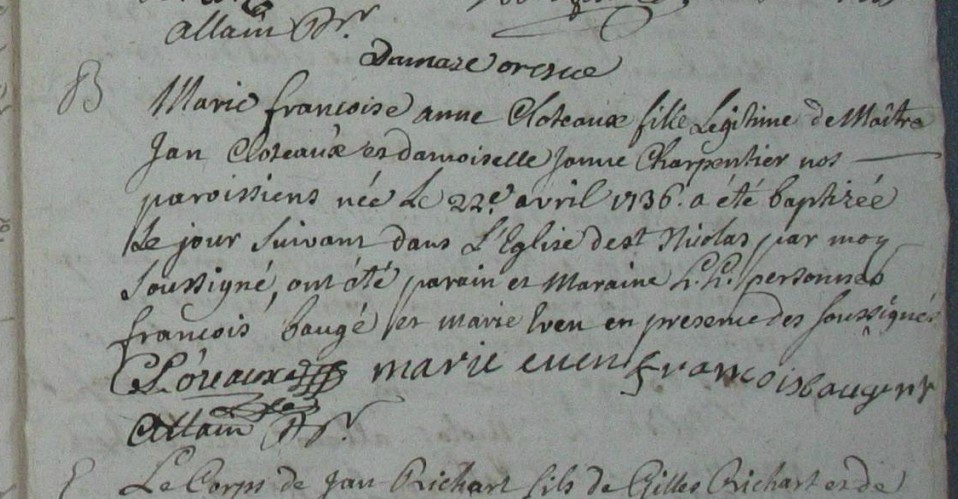 Allain Ptr.
Damase oresve
B Marie françoise anne Cloteaux fille Legitime de Maître
Jan Cloteaux et damoiselle Janne Charpentier nos
paroissiens née Le 22e avril 1736. a été baptizée
Le jour suivant dans L'Eglise de st Nicolas par moy
soussigné, ont été parain et maraine h.h. personnes
françois baugé et marie Even en presence des soussignés
Cloteaux marie even françois bauge
Allain Ptr.
Le Corps de Jan Richart fils de Gilles Richart et de